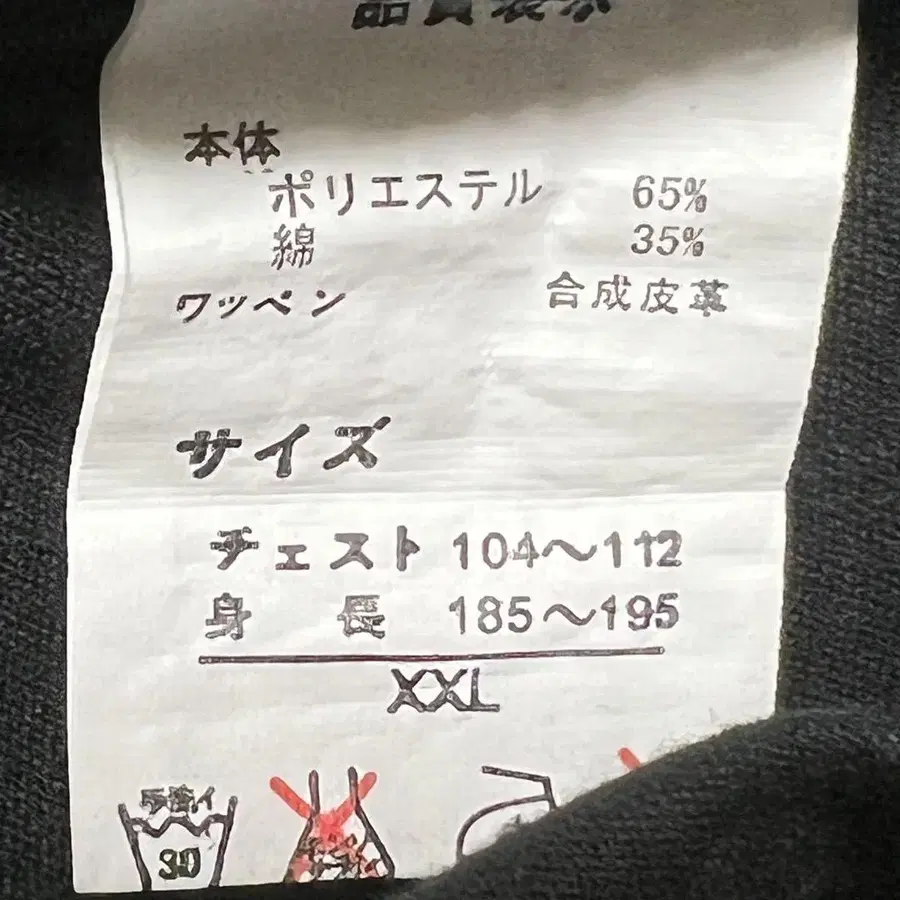 品質表示
本体
ポリエステル 65%
綿 35%
ワッペン 合成皮革
サイズ
チェスト 104～112
身 長 185～195
XXL
手洗イ
30